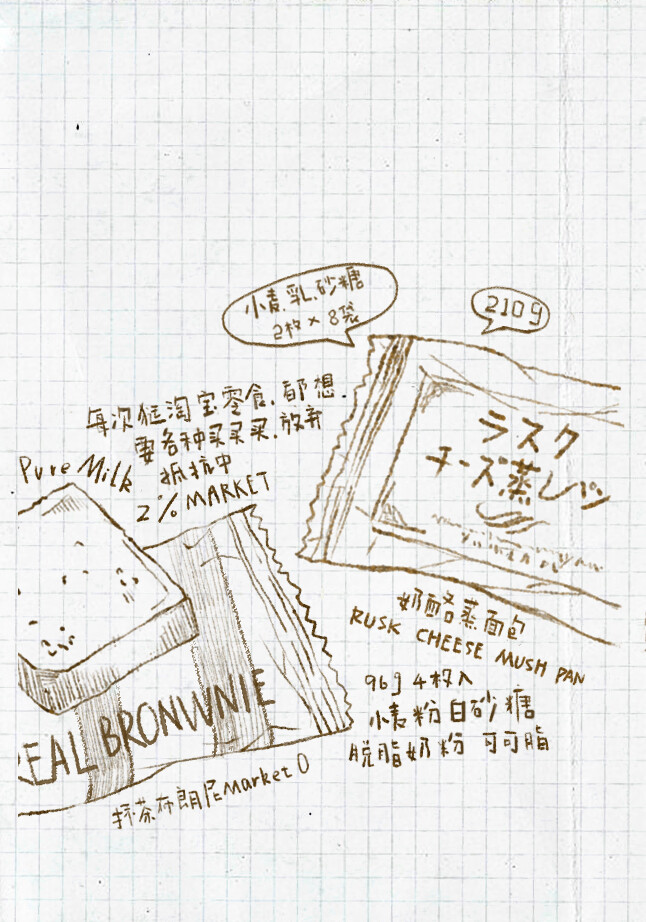 小麦.乳.砂糖
2枚×8袋
210g
每次逛淘宝零食.都想.
要各种买买买.放弃
抵抗中
2%MARKET
Pure Milk
ラスク
チーズ蒸しパン
奶酪蒸面包
RUSK CHEESE MUSH PAN
96g 4枚入
小麦粉白砂糖
脱脂奶粉 可可脂
REAL BRONWNIE
抹茶布朗尼Market O